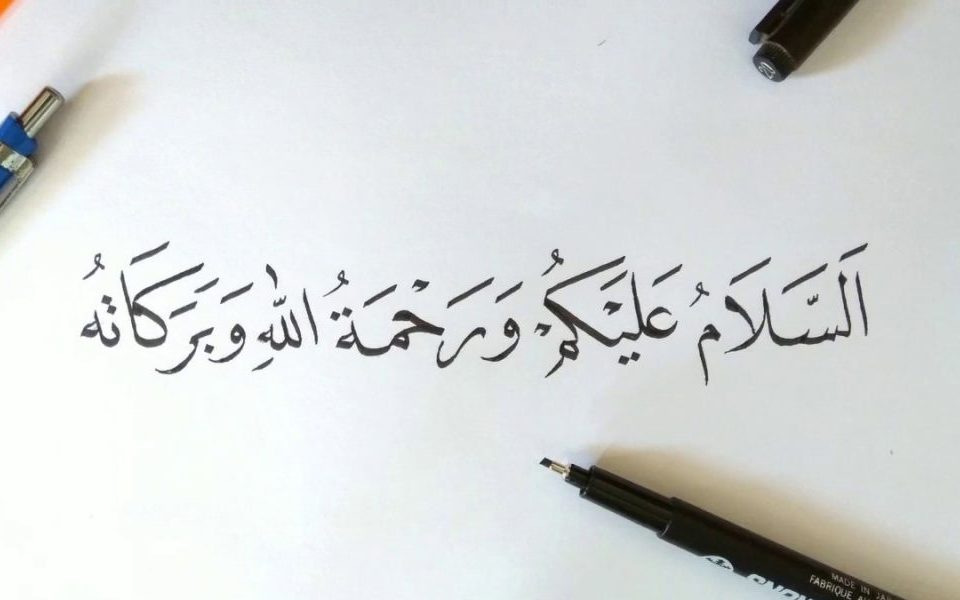 اَلسَّلَامُ عَلَيْكُمْ وَرَحْمَةُ اللهِ وَبَرَكَاتُهُ
MADE IN
FABRIQUE AU